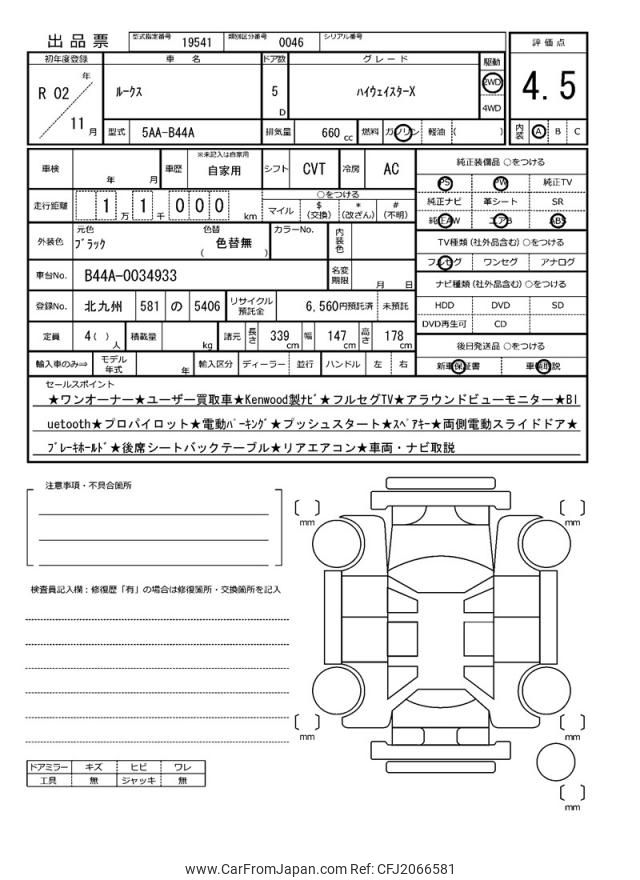 出品票 型式指定番号 19541 類別区分番号 0046 シリアル番号
初年度登録 車名 ドア数 グレード 駆動 評価点
R 02 年 11 月 ルークス 5 D ハイウェイスターX 2WD 4WD 4.5
型式 5AA-B44A 排気量 660 cc 燃料 ガソリン 軽油 ( ) 内装 A B C
車検 年 月 車歴 ※未記入は自家用 自家用 シフト CVT 冷房 AC 純正装備品 ○をつける
PS PW 純正TV
走行距離 1 万 1 千 0 0 0 km ○をつける 純正ナビ 革シート SR
マイル $ (交換) * (改ざん) # (不明) 純正AW エアB ABS
外装色 元色 ブラック 色替 色替無 ( ) カラーNo. 内装色 TV種類 (社外品含む) ○をつける
フルセグ ワンセグ アナログ
車台No. B44A-0034933 名変期限 月 日 ナビ種類 (社外品含む) ○をつける
登録No. 北九州 581 の 5406 リサイクル預託金 6,560円預託済 未預託 HDD DVD SD
DVD再生可 CD
定員 4 ( ) 人 積載量 kg 諸元 長さ 339 cm 幅 147 cm 高さ 178 cm 後日発送品 ○をつける
輸入車のみ⇨ モデル年式 年 輸入区分 ディーラー 並行 ハンドル 左 右 新車保証書 車輌取説
セールスポイント
★ワンオーナー★ユーザー買取車★Kenwood製ナビ★フルセグTV★アラウンドビューモニター★Bl
uetooth★プロパイロット★電動パーキング★プッシュスタート★スペアキー★両側電動スライドドア★
ブレーキホールド★後席シートバックテーブル★リアエアコン★車両・ナビ取説
注意事項・不具合箇所
検査員記入欄:修復歴「有」の場合は修復箇所・交換箇所を記入
mm
mm
mm
mm
mm
ドアミラー キズ ヒビ ワレ
工具 無 ジャッキ 無
www.CarFromJapan.com Ref: CFJ2066581